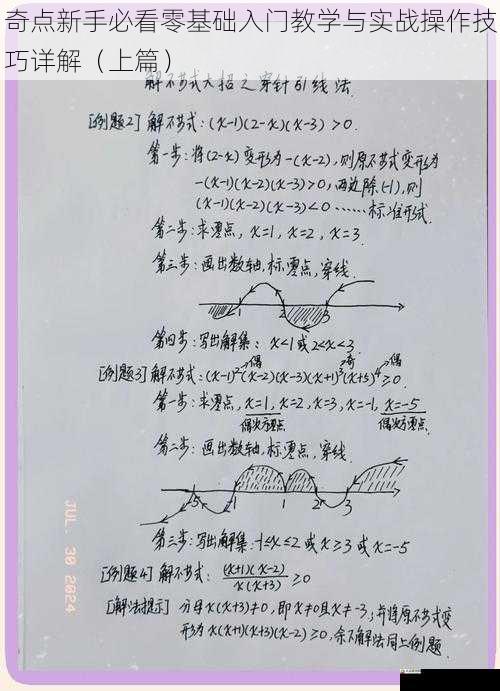 奇点新手必看零基础入门教学与实战操作技
巧详解（上篇）
解不等式大招之穿针引线法
[例题2] 解不等式：(x-1)(2-x)(x-3)>0.
第一步：将(2-x)变形为-(x-2)，则原不等式变形为
-(x-1)(x-2)(x-3)>0，两边除(-1)，则
(x-1)(x-2)(x-3)<0 ……标准形式.
第二步：求零点，x=1，x=2，x=3.
第三步：画出数轴，标零点，穿线.
1 2 3
第四步：写出解集：x<1或2<x<3.
偶 奇 偶
[例题3] 解不等式：(x-1)²(x-2)(x-3)(x+1)³(x+3)⁴≥0.
第一步：求零点，x=1，x=2，x=3，x=-1，x=-5
偶次方零点 偶次方零点
第二步：画出数轴，标零点，穿线.
-5 -1 1 2 3
第三步：写出解集 -1≤x≤2 或 x≥3 或 x=-5
[例题4] 解不等式：(x+1)(x-2)/x(x+3)≥0
[解法提示] 分母x(x+3)≠0，即x≠0且x≠-3；并将原不等式变
形为x(x+1)(x+3)(x-2)≥0，余下解法同上例题.
JUL. 30 2024